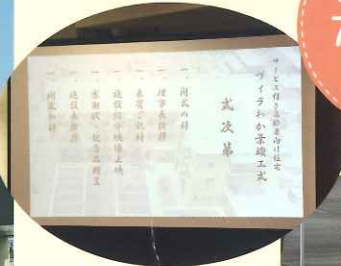 サービス付き高齢者向け住宅
ヴィラわか葉竣工式
式次第
一、開式の辞
一、理事長挨拶
一、来賓ご祝辞
一、施設紹介映像上映
一、感謝状・記念品贈呈
一、施設長挨拶
一、閉式の辞
7